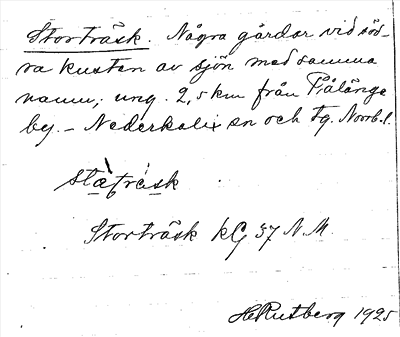 Storträsk. Några gårdar vid söd-
ra kusten av sjön med samma
namn, ung. 2,5 km från Pålänge
by. – Nederkalix sn och tg. Norrb. l.
Storträsk kG 37 N. M.
H Rutberg 1925